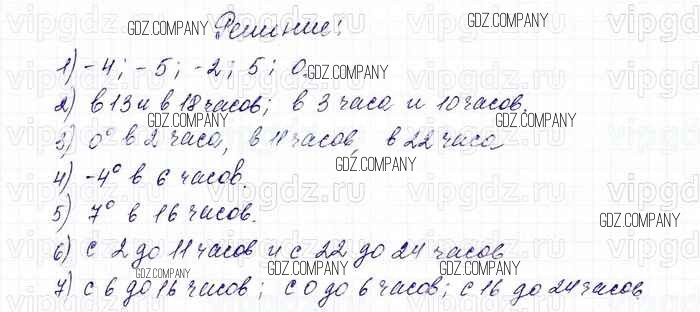 Решение:
1) -4; -5; -2; 5; 0.
2) в 13 и в 18 часов; в 3 часа и 10 часов.
3) 0° в 2 часа, в 11 часов, в 22 часа
4) -4° в 6 часов.
5) 7° в 16 часов.
6) с 2 до 11 часов и с 22 до 24 часов
7) с 6 до 16 часов; с 0 до 6 часов; с 16 до 24 часов.
GDZ.COMPANY
GDZ.COMPANY
GDZ.COMPANY
GDZ.COMPANY
GDZ.COMPANY
GDZ.COMPANY
GDZ.COMPANY
GDZ.COMPANY
GDZ.COMPANY
GDZ.COMPANY
vipgdz.ru